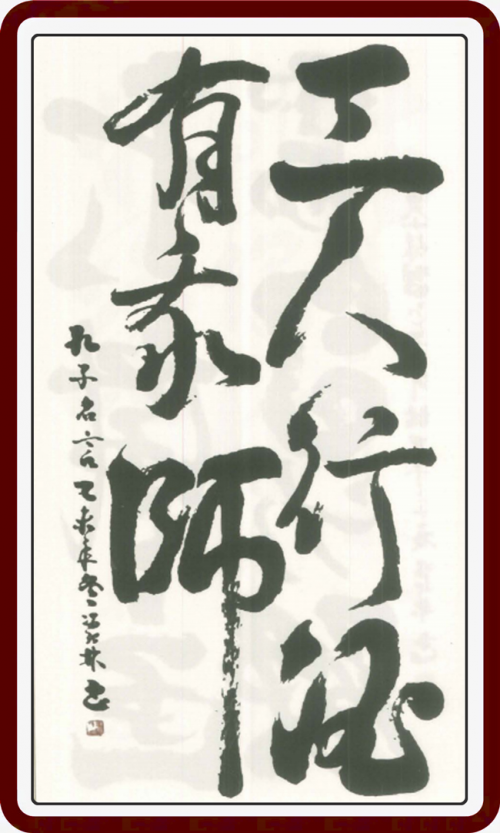 三人行必
有我師
孔子名言乙未年冬林书